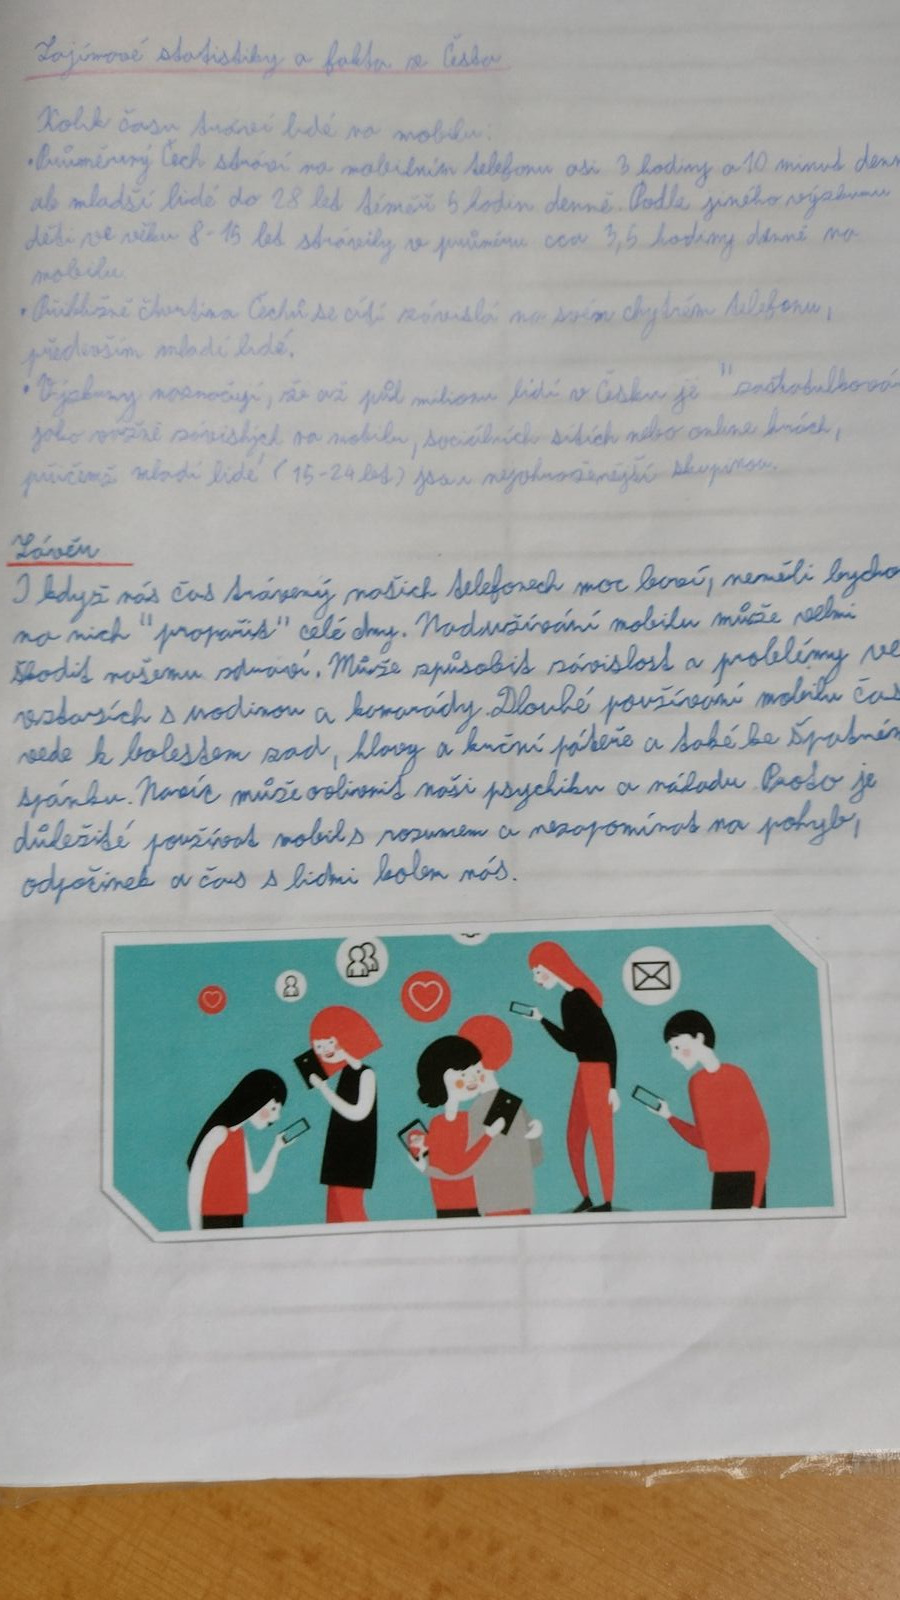 Zajímavé statistiky a fakta z Česka
Kolik času tráví lidé na mobilu:
•Průměrný Čech stráví na mobilním telefonu asi 3 hodiny a 10 minut denn
ale mladší lidé do 28 let téměř 5 hodin denně. Podle jiného výzkumu
děti ve věku 8-15 let strávily v průměru cca 3,5 hodiny denně na
mobilu
•Přibližně čtvrtina Čechů se cítí závislá na svém chytrém telefonu,
především mladí lidé.
•Výzkumy naznačují, že až půl milionu lidí v Česku je "zaškatulková
jako vážně závislých na mobilu, sociálních sítích nebo online hrách,
přičemž mladí lidé (15-24 let) jsou nejohroženější skupinou.
Závěr
I když nás čas trávený našich telefonech moc baví, neměli bycho
na nich "propařit" celé dny. Nadužívání mobilu může velmi
škodit našemu zdraví. Může způsobit závislost a problémy ve
vztazích s rodinou a kamarády. Dlouhé používaní mobilu čas
vede k bolestem zad, hlavy a krční páteře a také ke špatném
spánku. Navíc může ovlivnit naši psychiku a náladu Proto je
důležité používat mobil s rozumem a nezapomínat na pohyb,
odpočinek a čas s lidmi kolem nás.